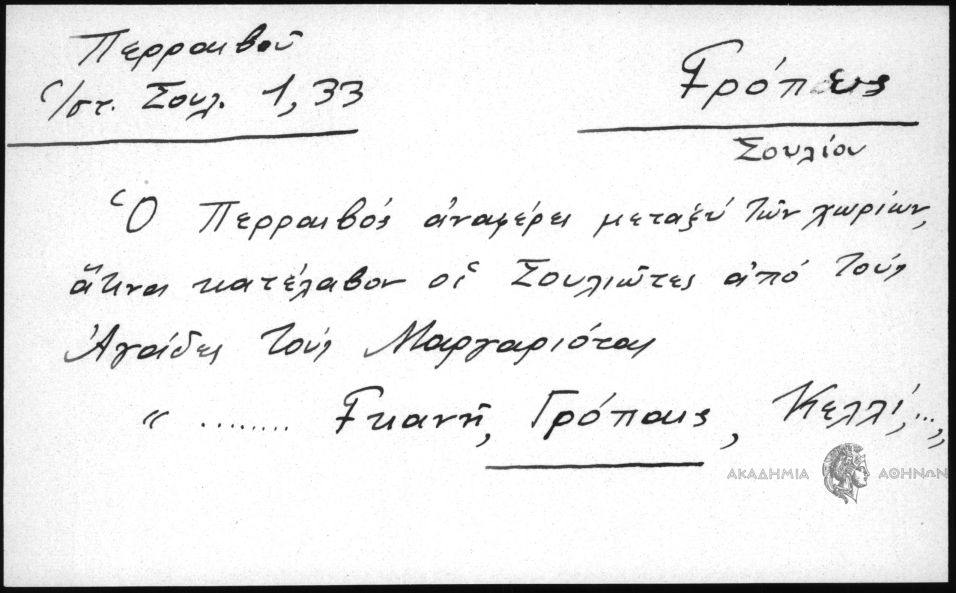 Περραιβοῦ
Ἱστ. Σουλ. 1,33
Γρόπαις
Σουλίου
Ὁ Περραιβός ἀναφέρει μεταξύ τῶν χωρίων,
ἅτινα κατέλαβον οἱ Σουλιῶτες ἀπό τούς
Ἀγαίδες τούς Μαργαριόται
" ........ Γκιανῆ, Γρόπαις, Κελλί, ...,
ΑΚΑΔΗΜΙΑ ΑΘΗΝΩΝ